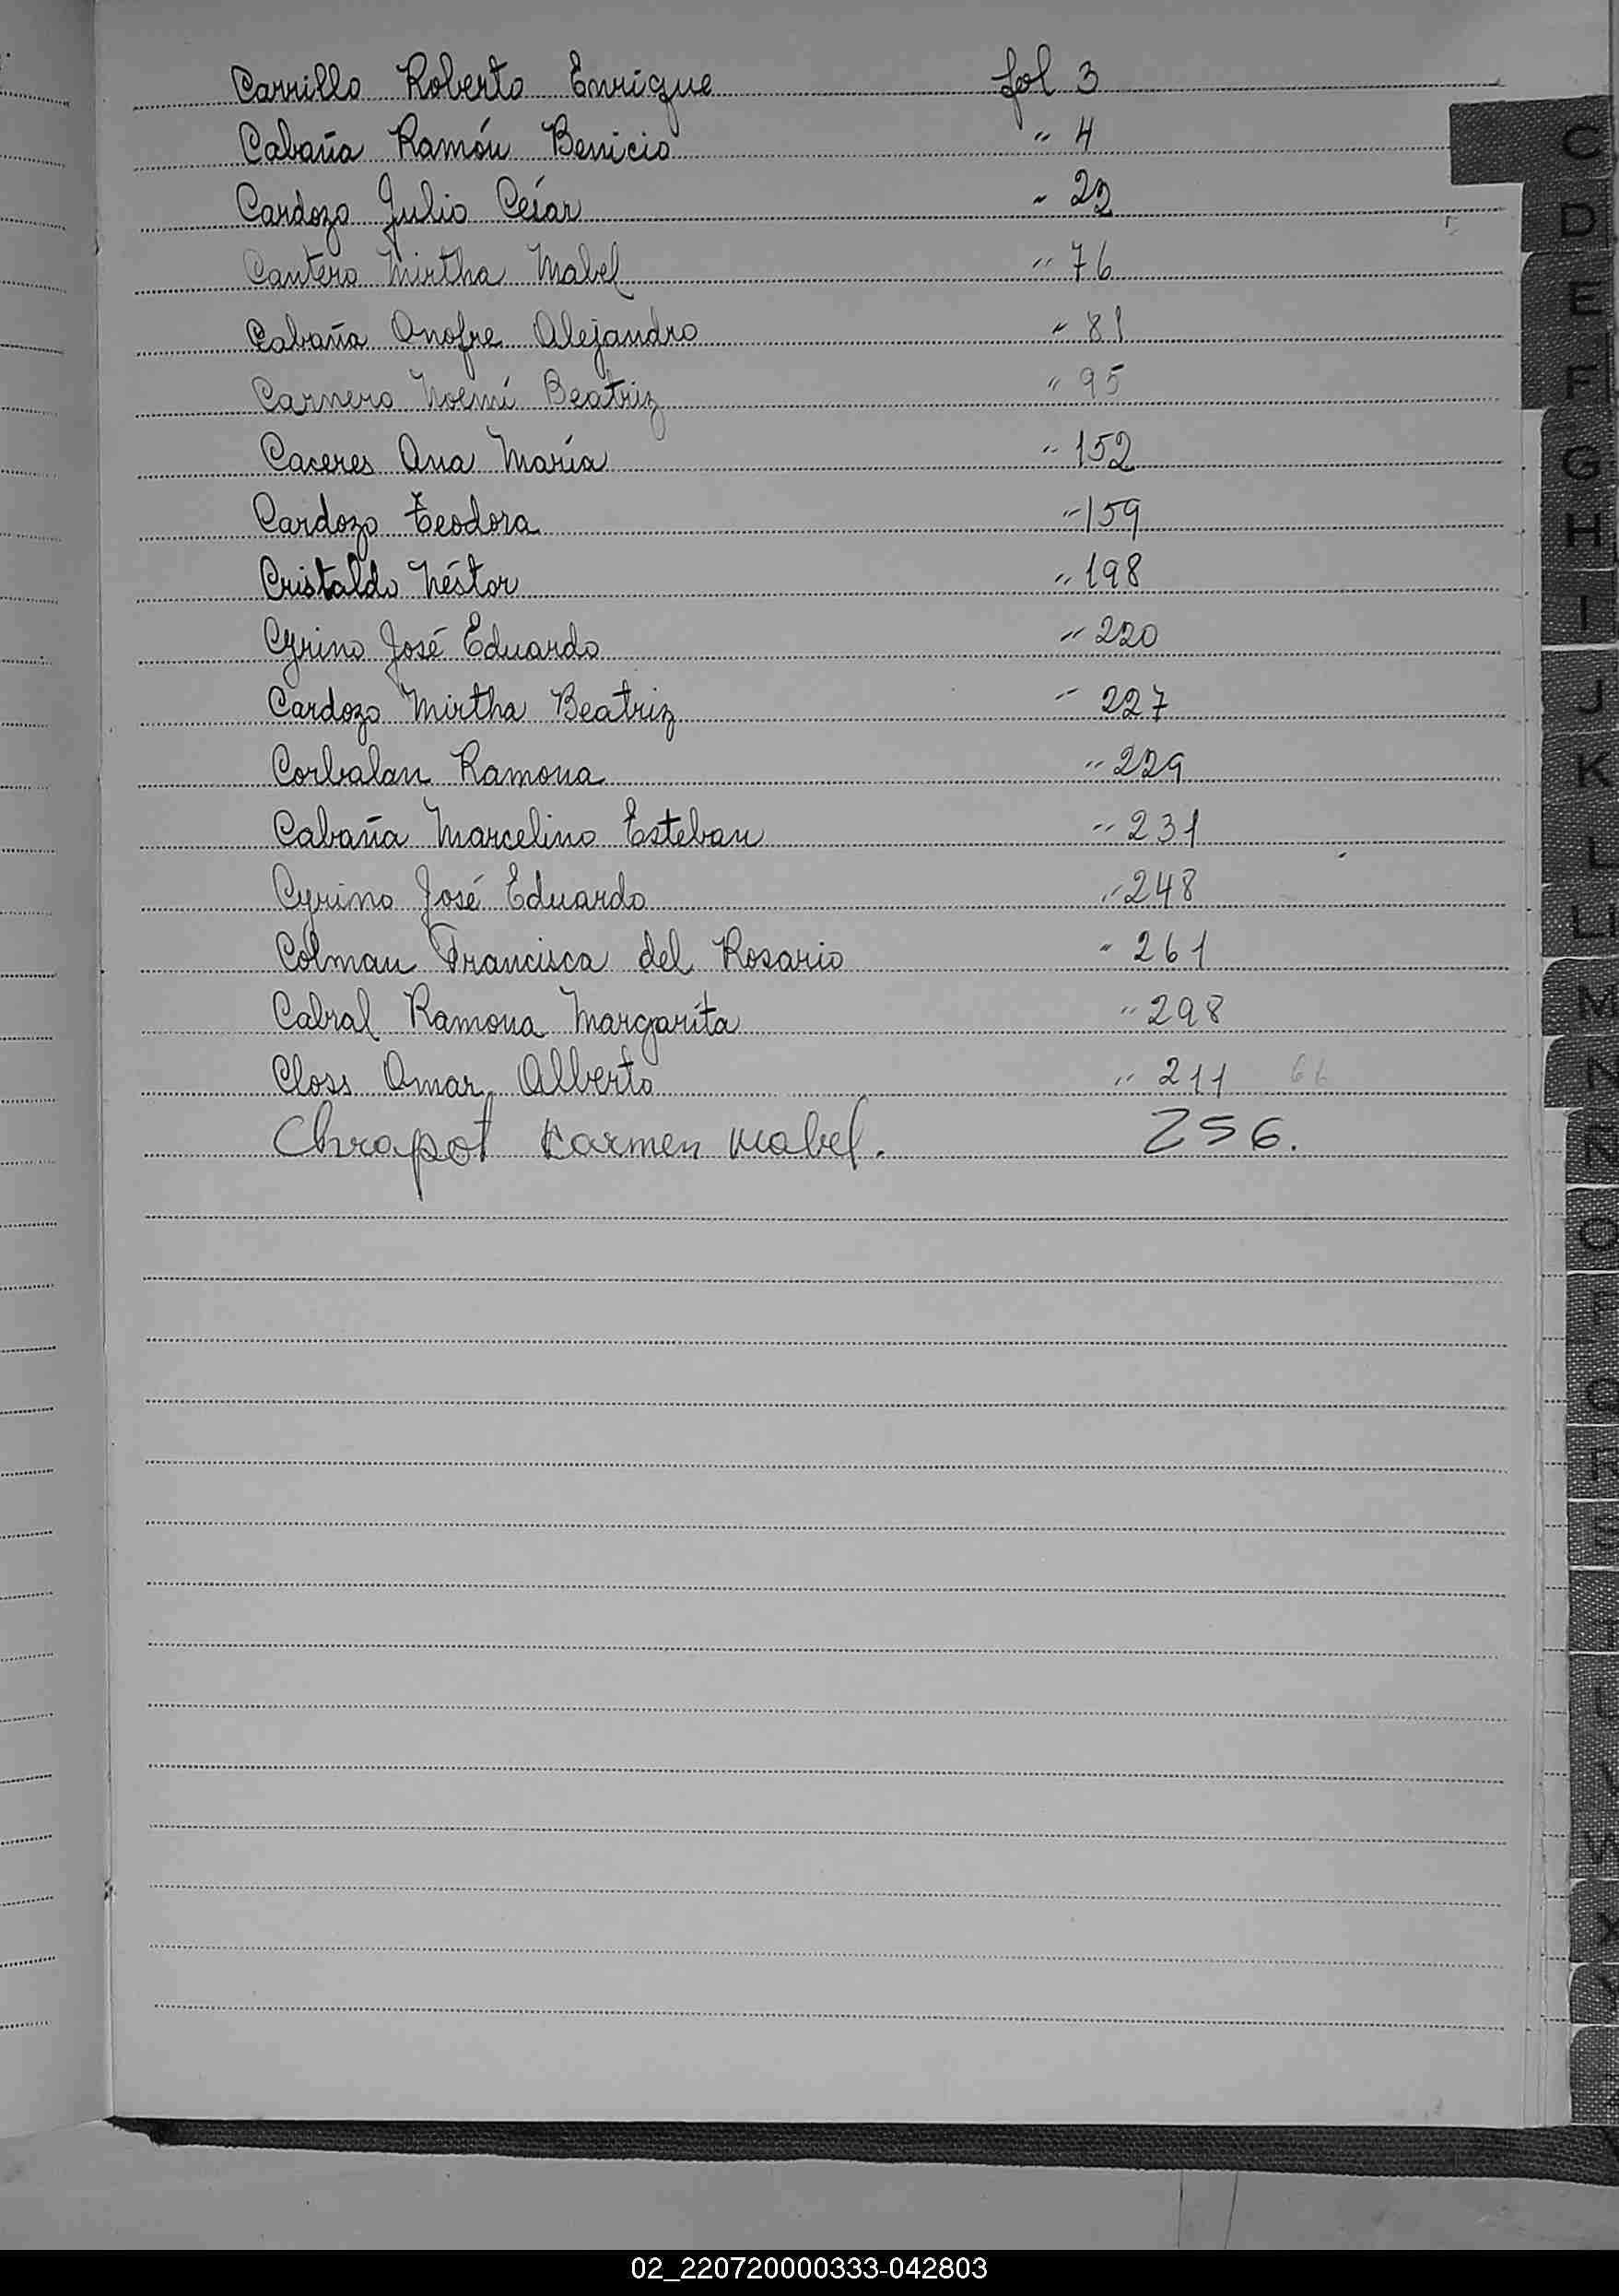 Carrillo Roberto Enrique fol 3
Cabaña Ramón Benicio " 4
Cardozo Julio César " 22
Cantero Mirtha Mabel " 76
Cabaña Onofre Alejandro " 81
Carnero Noemí Beatriz " 95
Caceres Ana María " 152
Cardozo Teodora " 159
Cristaldo Néstor " 198
Cyrino José Eduardo " 220
Cardozo Mirtha Beatriz " 227
Corbalan Ramona " 229
Cabaña Marcelino Esteban " 231
Cyrino José Eduardo " 248
Colman Francisca del Rosario " 261
Cabral Ramona Margarita " 298
Closs Omar Alberto " 211
Chrapot Karmen Mabel. 256.
C
D
E
F
G
H
I
J
K
L
LL
M
N
Ñ
O
P
Q
R
S
U
W
X
02_220720000333-042803